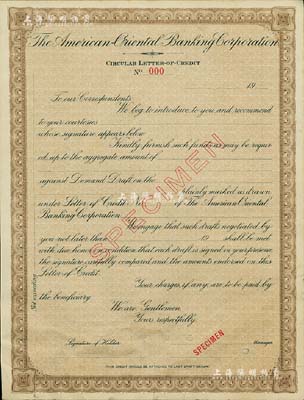 The American Oriental Banking Corporation
CIRCULAR LETTER-OF-CREDIT
No. 000
19
To our Correspondents
We beg to introduce to you and recommend
to your courtesies
whose signature appears below
Kindly furnish such funds as may be requir
ed, up to the aggregate amount of
against Demand Draft on the plainly marked as drawn
under Letter of Credit No. of The American Oriental
Banking Corporation
We engage that such drafts negotiated by
you not later than 19 shall be met
with due honor on condition that each draft is signed in your presence
the signature carefully compared and the amounts endorsed on this
Letter of Credit.
Your charges, if any, are to be paid by
the beneficiary
We are Gentlemen
Yours respectfully
SPECIMEN
SPECIMEN
Signature of Holder
Manager
THIS CREDIT SHOULD BE ATTACHED TO LAST DRAFT DRAWN